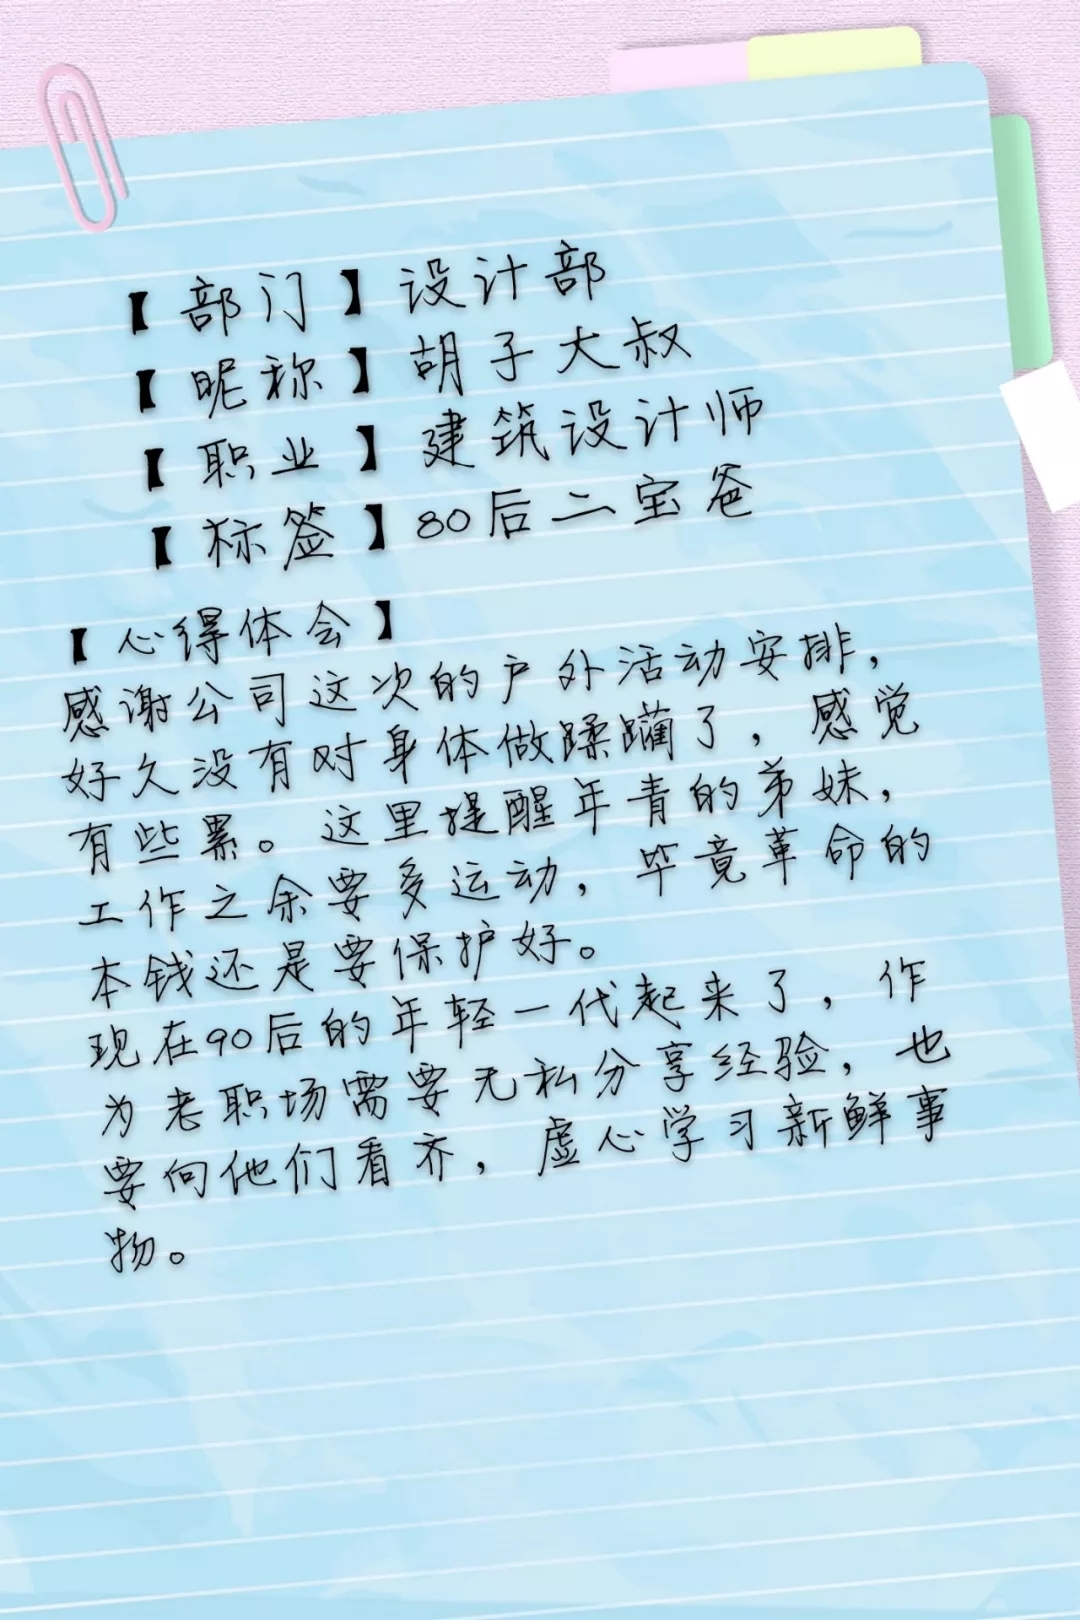 【部门】设计部
【昵称】胡子大叔
【职业】建筑设计师
【标签】80后二宝爸
【心得体会】
感谢公司这次的户外活动安排，
好久没有对身体做蹂躏了，感觉
有些累。这里提醒年青的弟妹，
工作之余要多运动，毕竟革命的
本钱还是要保护好。
现在90后的年轻一代起来了，作
为老职场需要无私分享经验，也
要向他们看齐，虚心学习新鲜事
物。